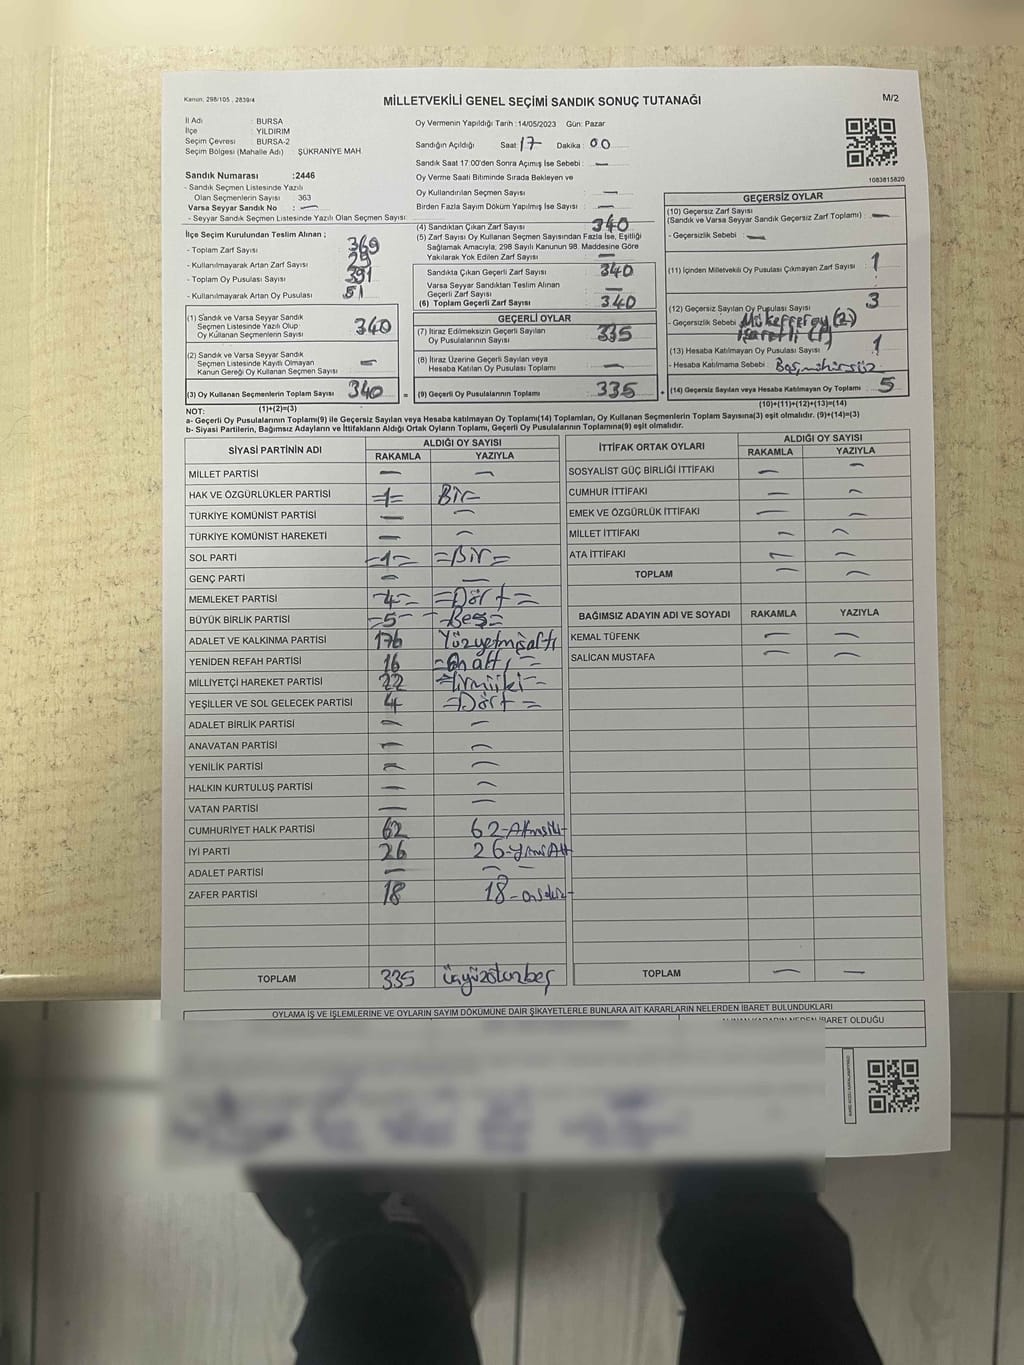 Kanun; 298/105 , 2839/4
MİLLETVEKİLİ GENEL SEÇİMİ SANDIK SONUÇ TUTANAĞI
M/2
İl Adı : BURSA
İlçe : YILDIRIM
Seçim Çevresi : BURSA-2
Seçim Bölgesi (Mahalle Adı) : ŞÜKRANİYE MAH.
Sandık Numarası :2446
- Sandık Seçmen Listesinde Yazılı
Olan Seçmenlerin Sayısı : 363
Varsa Seyyar Sandık No : —
- Seyyar Sandık Seçmen Listesinde Yazılı Olan Seçmen Sayısı
Oy Vermenin Yapıldığı Tarih :14/05/2023 Gün: Pazar
Sandığın Açıldığı Saat: 17 Dakika: 00
Sandık Saat 17:00'den Sonra Açımış İse Sebebi : —
Oy Verme Saati Bitiminde Sırada Bekleyen ve
Oy Kullandırılan Seçmen Sayısı —
Birden Fazla Sayım Döküm Yapılmış İse Sayısı —
1083815820
İlçe Seçim Kurulundan Teslim Alınan ;
- Toplam Zarf Sayısı 369
- Kullanılmayarak Artan Zarf Sayısı 29
- Toplam Oy Pusulası Sayısı 391
- Kullanılmayarak Artan Oy Pusulası 51
(1) Sandık ve Varsa Seyyar Sandık
Seçmen Listesinde Yazılı Olup
Oy Kullanan Seçmenlerin Sayısı 340
(2) Sandık ve Varsa Seyyar Sandık
Seçmen Listesinde Kayıtlı Olmayan
Kanun Gereği Oy Kullanan Seçmen Sayısı —
(3) Oy Kullanan Seçmenlerin Toplam Sayısı 340
(4) Sandıktan Çıkan Zarf Sayısı 340
(5) Zarf Sayısı Oy Kullanan Seçmen Sayısından Fazla İse, Eşitliği
Sağlamak Amacıyla, 298 Sayılı Kanunun 98. Maddesine Göre
Yakılarak Yok Edilen Zarf Sayısı —
Sandıkta Çıkan Geçerli Zarf Sayısı 340
Varsa Seyyar Sandıktan Teslim Alınan
Geçerli Zarf Sayısı —
(6) Toplam Geçerli Zarf Sayısı 340
GEÇERLİ OYLAR
(7) İtiraz Edilmeksizin Geçerli Sayılan
Oy Pusulalarının Sayısı 335
(8) İtiraz Üzerine Geçerli Sayılan veya
Hesaba Katılan Oy Pusulası Toplamı —
= (9) Geçerli Oy Pusulalarının Toplamı 335
GEÇERSİZ OYLAR
(10) Geçersiz Zarf Sayısı
(Sandık ve Varsa Seyyar Sandık Geçersiz Zarf Toplamı) —
- Geçersizlik Sebebi : —
(11) İçinden Milletvekili Oy Pusulası Çıkmayan Zarf Sayısı 1
(12) Geçersiz Sayılan Oy Pusulası Sayısı 3
- Geçersizlik Sebebi : (2)
İşaretli (1)
(13) Hesaba Katılmayan Oy Pusulası Sayısı 1
- Hesaba Katılmama Sebebi :
+ (14) Geçersiz Sayılan veya Hesaba Katılmayan Oy Toplamı 5
NOT: (1)+(2)=(3)
(10)+(11)+(12)+(13)=(14)
a- Geçerli Oy Pusulalarının Toplamı(9) ile Geçersiz Sayılan veya Hesaba katılmayan Oy Toplamı(14) Toplamları, Oy Kullanan Seçmenlerin Toplam Sayısına(3) eşit olmalıdır. (9)+(14)=(3)
b- Siyasi Partilerin, Bağımsız Adayların ve İttifakların Aldığı Ortak Oyların Toplamı, Geçerli Oy Pusulalarının Toplamına(9) eşit olmalıdır.
SİYASİ PARTİNİN ADI ALDIĞI OY SAYISI
RAKAMLA YAZIYLA
MİLLET PARTİSİ — —
HAK VE ÖZGÜRLÜKLER PARTİSİ =1= Bir=
TÜRKİYE KOMÜNİST PARTİSİ — —
TÜRKİYE KOMÜNİST HAREKETİ — —
SOL PARTİ =1= =Bir=
GENÇ PARTİ — —
MEMLEKET PARTİSİ =4= =Dört=
BÜYÜK BİRLİK PARTİSİ =5= =Beş=
ADALET VE KALKINMA PARTİSİ 176 Yüzyetmişaltı
YENİDEN REFAH PARTİSİ 16 =On altı=
MİLLİYETÇİ HAREKET PARTİSİ 22 =Yirmiiki=
YEŞİLLER VE SOL GELECEK PARTİSİ 4 =Dört=
ADALET BİRLİK PARTİSİ — —
ANAVATAN PARTİSİ — —
YENİLİK PARTİSİ — —
HALKIN KURTULUŞ PARTİSİ — —
VATAN PARTİSİ — —
CUMHURİYET HALK PARTİSİ 62 62-
İYİ PARTİ 26 26-
ADALET PARTİSİ — — —
ZAFER PARTİSİ 18 18-
TOPLAM 335 üçyüzotuzbeş
İTTİFAK ORTAK OYLARI ALDIĞI OY SAYISI
RAKAMLA YAZIYLA
SOSYALİST GÜÇ BİRLİĞİ İTTİFAKI — —
CUMHUR İTTİFAKI — —
EMEK VE ÖZGÜRLÜK İTTİFAKI — —
MİLLET İTTİFAKI — —
ATA İTTİFAKI — —
TOPLAM — —
BAĞIMSIZ ADAYIN ADI VE SOYADI RAKAMLA YAZIYLA
KEMAL TÜFENK — —
SALİCAN MUSTAFA — —
TOPLAM — —
OYLAMA İŞ VE İŞLEMLERİNE VE OYLARIN SAYIM DÖKÜMÜNE DAİR ŞİKAYETLERLE BUNLARA AİT KARARLARIN NELERDEN İBARET BULUNDUKLARI
ALINAN KARARIN NEDEN İBARET OLDUĞU